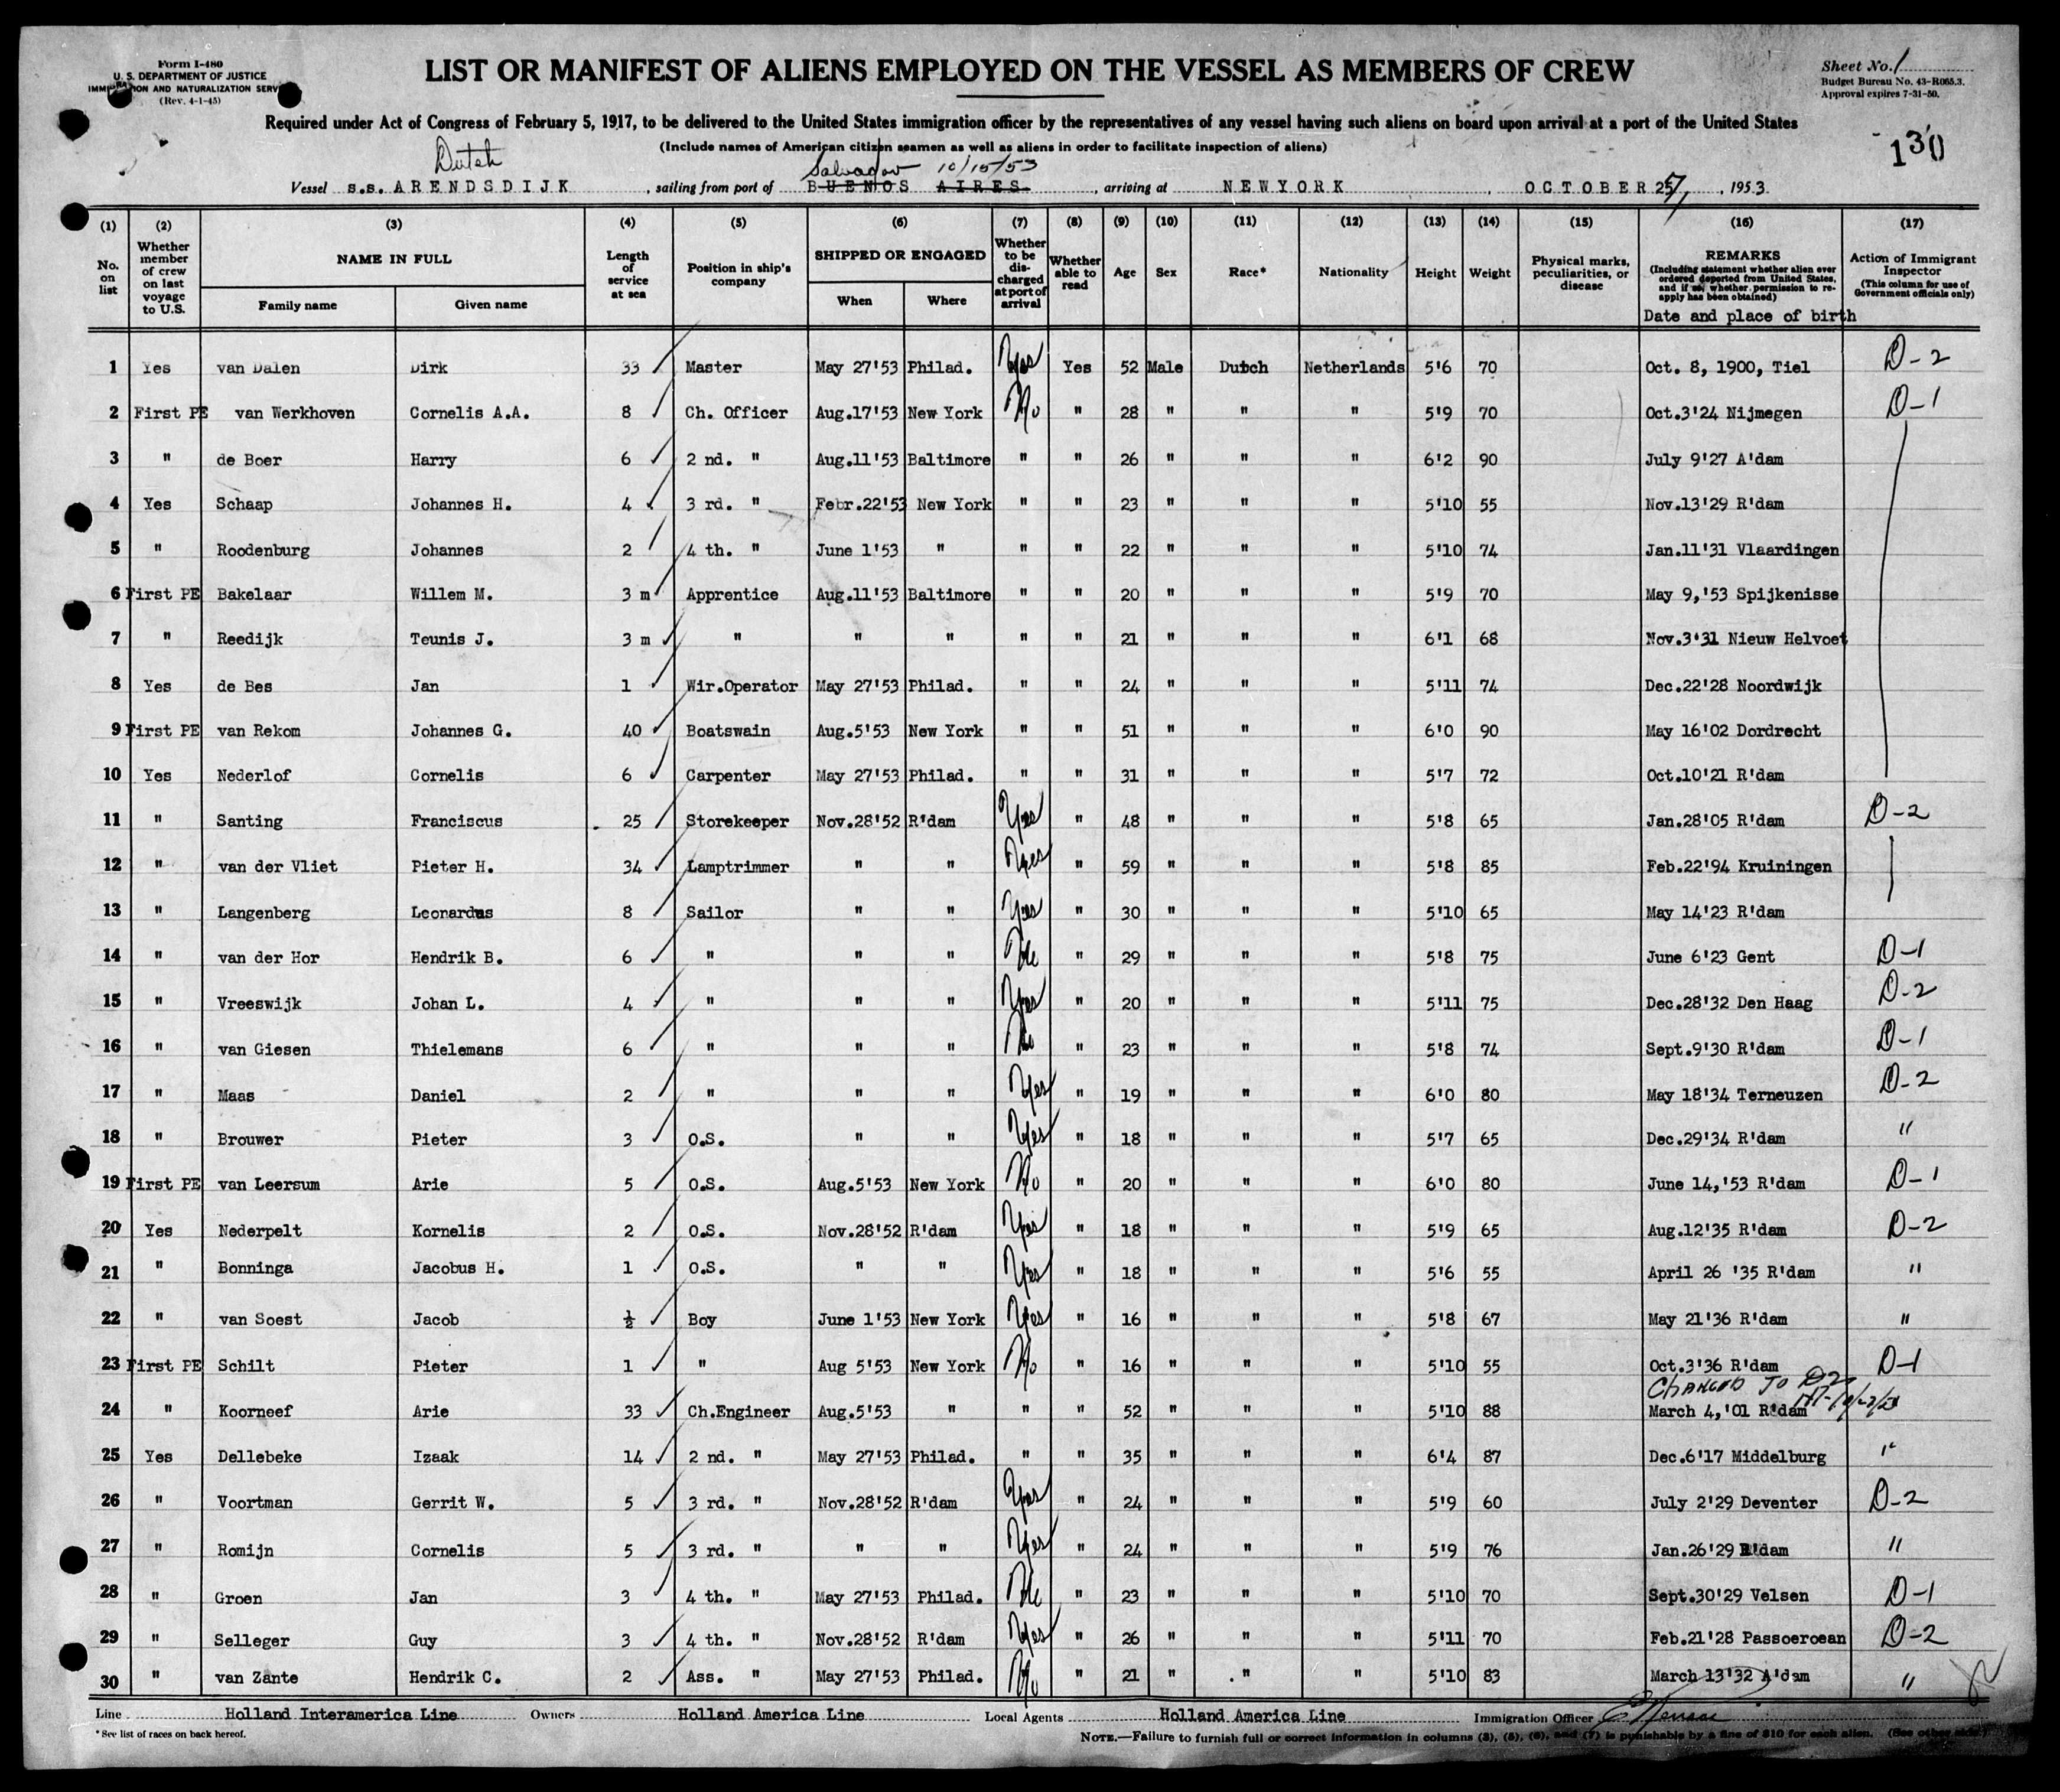 Form I-480
U. S. DEPARTMENT OF JUSTICE
IMMIGRATION AND NATURALIZATION SERVICE
(Rev. 4-1-45)
LIST OR MANIFEST OF ALIENS EMPLOYED ON THE VESSEL AS MEMBERS OF CREW
Sheet No. 1
Budget Bureau No. 43-R065.3.
Approval expires 7-31-50.
Required under Act of Congress of February 5, 1917, to be delivered to the United States immigration officer by the representatives of any vessel having such aliens on board upon arrival at a port of the United States
(Include names of American citizen seamen as well as aliens in order to facilitate inspection of aliens)
130
Dutch
Salvador 10/15/53
Vessel s.s. ARENDSDIJK, sailing from port of BUENOS AIRES, arriving at NEWYORK, OCTOBER 27, 1953.
(1) (2) (3) (4) (5) (6) (7) (8) (9) (10) (11) (12) (13) (14) (15) (16) (17)
No. on list
Whether member of crew on last voyage to U.S.
NAME IN FULL
Family name
Given name
Length of service at sea
Position in ship's company
SHIPPED OR ENGAGED
When
Where
Whether to be discharged at port of arrival
Whether able to read
Age
Sex
Race*
Nationality
Height
Weight
Physical marks, peculiarities, or disease
REMARKS
(Including statement whether alien ever ordered deported from United States, and if so, whether permission to reapply has been obtained)
Date and place of birth
Action of Immigrant Inspector
(This column for use of Government officials only)
1 Yes van Dalen Dirk 33 Master May 27'53 Philad. Yes Yes 52 Male Dutch Netherlands 5'6 70 Oct. 8, 1900, Tiel D-2
2 First PE van Werkhoven Cornelis A.A. 8 Ch. Officer Aug.17'53 New York No " 28 " " " 5'9 70 Oct.3'24 Nijmegen D-1
3 " de Boer Harry 6 2 nd. " Aug.11'53 Baltimore " " 26 " " " 6'2 90 July 9'27 A'dam
4 Yes Schaap Johannes H. 4 3 rd. " Febr.22'53 New York " " 23 " " " 5'10 55 Nov.13'29 R'dam
5 " Roodenburg Johannes 2 4 th. " June 1'53 " " " 22 " " " 5'10 74 Jan.11'31 Vlaardingen
6 First PE Bakelaar Willem M. 3 m Apprentice Aug.11'53 Baltimore " " 20 " " " 5'9 70 May 9,'53 Spijkenisse
7 " Reedijk Teunis J. 3 m " " " " " 21 " " " 6'1 68 Nov.3'31 Nieuw Helvoet
8 Yes de Bes Jan 1 Wir.Operator May 27'53 Philad. " " 24 " " " 5'11 74 Dec.22'28 Noordwijk
9 First PE van Rekom Johannes G. 40 Boatswain Aug.5'53 New York " " 51 " " " 6'0 90 May 16'02 Dordrecht
10 Yes Nederlof Cornelis 6 Carpenter May 27'53 Philad. " " 31 " " " 5'7 72 Oct.10'21 R'dam
11 " Santing Franciscus 25 Storekeeper Nov.28'52 R'dam Yes " 48 " " " 5'8 65 Jan.28'05 R'dam D-2
12 " van der Vliet Pieter H. 34 Lamptrimmer " " Yes " 59 " " " 5'8 85 Feb.22'94 Kruiningen
13 " Langenberg Leonardus 8 Sailor " " Yes " 30 " " " 5'10 65 May 14'23 R'dam
14 " van der Hor Hendrik B. 6 " " " No " 29 " " " 5'8 75 June 6'23 Gent D-1
15 " Vreeswijk Johan L. 4 " " " Yes " 20 " " " 5'11 75 Dec.28'32 Den Haag D-2
16 " van Giesen Thielemans 6 " " " No " 23 " " " 5'8 74 Sept.9'30 R'dam D-1
17 " Maas Daniel 2 " " " Yes " 19 " " " 6'0 80 May 18'34 Terneuzen D-2
18 " Brouwer Pieter 3 O.S. " " Yes " 18 " " " 5'7 65 Dec.29'34 R'dam "
19 First PE van Leersum Arie 5 O.S. Aug.5'53 New York No " 20 " " " 6'0 80 June 14,'53 R'dam D-1
20 Yes Nederpelt Kornelis 2 O.S. Nov.28'52 R'dam Yes " 18 " " " 5'9 65 Aug.12'35 R'dam D-2
21 " Bonninga Jacobus H. 1 O.S. " " Yes " 18 " " " 5'6 55 April 26 '35 R'dam "
22 " van Soest Jacob ½ Boy June 1'53 New York Yes " 16 " " " 5'8 67 May 21'36 R'dam "
23 First PE Schilt Pieter 1 " Aug 5'53 New York No " 16 " " " 5'10 55 Oct.3'36 R'dam D-1
CHANGED TO D2
24 " Koorneef Arie 33 Ch.Engineer Aug.5'53 " " " 52 " " " 5'10 88 March 4,'01 R'dam
25 Yes Dellebeke Izaak 14 2 nd. " May 27'53 Philad. " " 35 " " " 6'4 87 Dec.6'17 Middelburg "
26 " Voortman Gerrit W. 5 3 rd. " Nov.28'52 R'dam Yes " 24 " " " 5'9 60 July 2'29 Deventer D-2
27 " Romijn Cornelis 5 3 rd. " " " Yes " 24 " " " 5'9 76 Jan.26'29 R'dam "
28 " Groen Jan 3 4 th. " May 27'53 Philad. No " 23 " " " 5'10 70 Sept.30'29 Velsen D-1
29 " Selleger Guy 3 4 th. " Nov.28'52 R'dam Yes " 26 " " " 5'11 70 Feb.21'28 Passoeroean D-2
30 " van Zante Hendrik C. 2 Ass. " May 27'53 Philad. No " 21 " " " 5'10 83 March 13'32 A'dam "
Line Holland Interamerica Line Owners Holland America Line Local Agents Holland America Line Immigration Officer
* See list of races on back hereof.
NOTE.—Failure to furnish full or correct information in columns (3), (5), (6), and (7) is punishable by a fine of $10 for each alien. (See other side.)